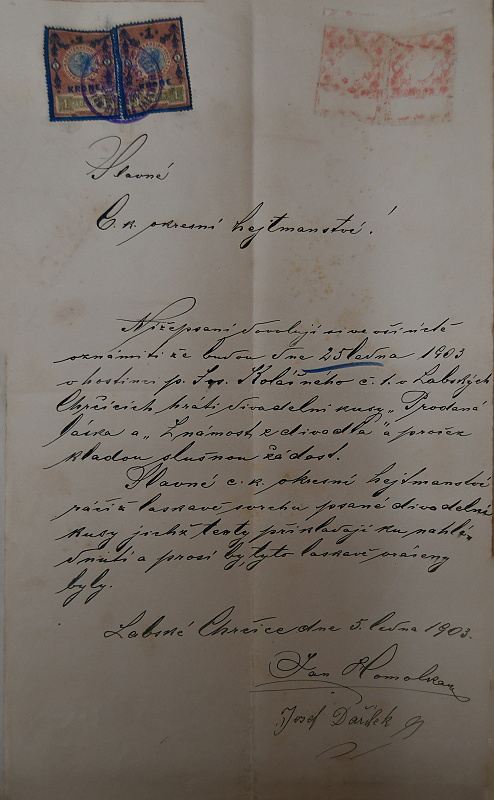 1 KRONE 1 KRONE
Slavné
C. k. okresní hejtmanství!
Nížepsaní dovolují si ve vší úctě
oznámiti že budou dne 25 ledna 1903
v hostinci p. Jos. Kolářného č. 1. v Labských
Chrčicích hráti divadelní kusy „Prodaná
láska a „Známost z divadla" a proček
kladou slušnou žádost.
Slavné c. k. okresní hejtmanství
račiž laskavě svrchu psané divadelní
kusy jichž texty přikládají ku nahléd-
nutí a prosí by, tyto laskavě vráceny
byly.
Labské Chrčice dne 5. ledna 1903.
Jan Homolka
Josef